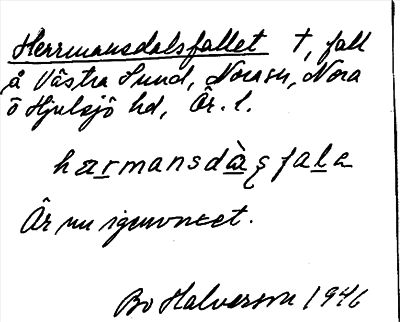 Herrmansdalsfallet †, fall
å Västra Sund, Nora sn, Nora
o Hjulsjö hd, Ör. l.
hærmansdàʂfala
Är nu igenvuxet.
Bo Halverson 1946